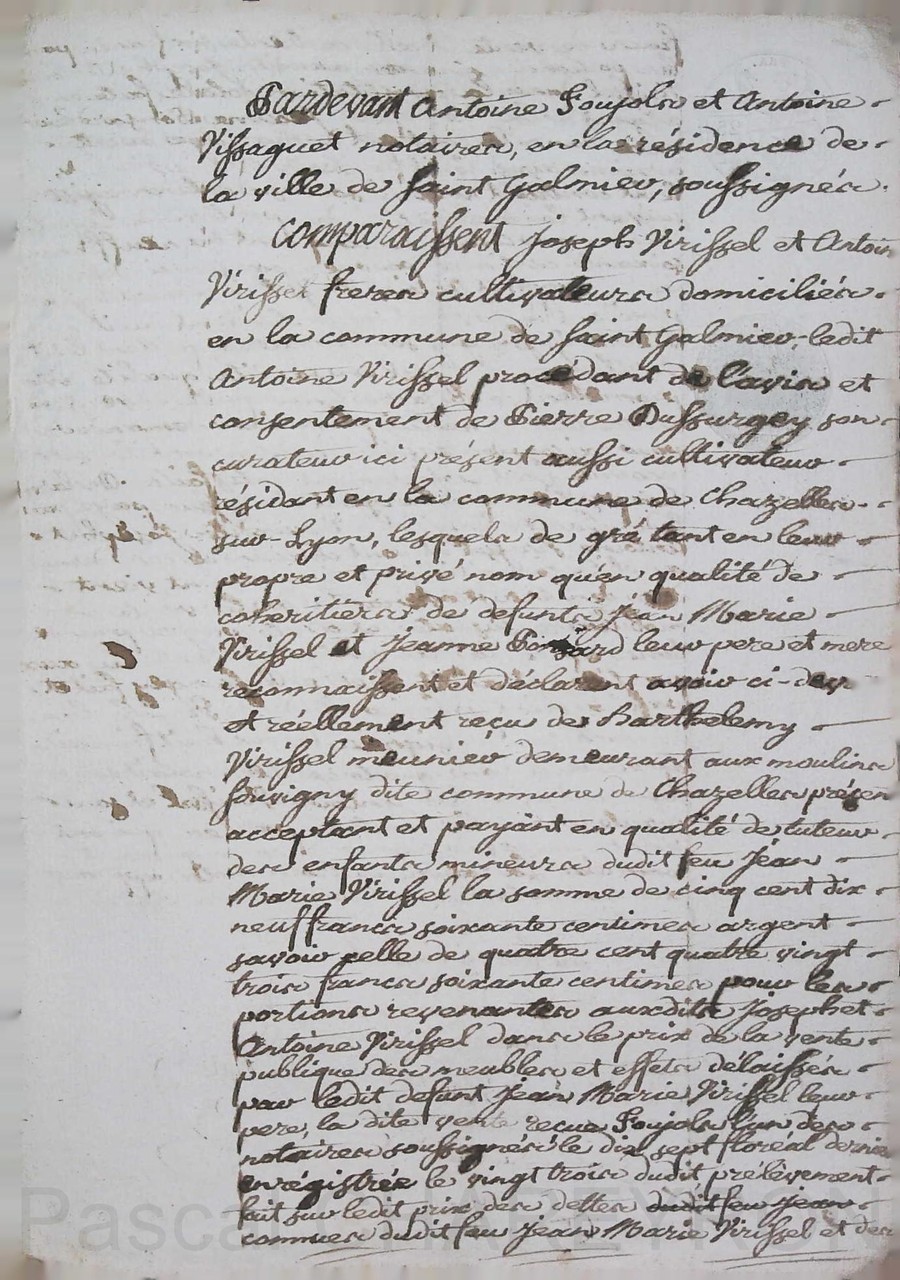 Pardevant Antoine Soujols et Antoine
Vissaguet notaires, en la résidence de
la ville de Saint Galmier, soussignés.
Comparaissent Joseph Virissel et Antoin
Virissel freres cultivateurs domiciliés
en la commune de Saint Galmier, ledit
Antoine Virissel procedant de l'avis et
consentement de Pierre Dussurgey son
curateur ici présent aussi cultivateur
résidant en la commune de Chazelles
sur-Lyon, lesquels de gré tant en leur
propre et privé nom qu'en qualité de
coheritiers de defunts Jean Marie
Virissel et Jeanne leur pere et mere
reconnaissent et déclarent avoir ci-dev
et réellement reçu de Barthelemy
Virissel meunier demeurant aux moulins
Souvigny dite commune de Chazelles présen
acceptant et payant en qualité de tuteur
des enfants mineurs dudit feu Jean
Marie Virissel la somme de cinq cent dix
neuf francs soixante centimes argent
savoir celle de quatre cent quatre vingt
trois francs soixante centimes pour les
portions revenantes auxdits Joseph et
Antoine Virissel dans le prix de la vente
publique des meubles et effets délaissés
par ledit defunt Jean Marie Virissel leur
pere, la dite vente reçue Soujols l'un des
notaires soussignés le dix sept floréal dernie
enrégistrée le vingt trois dudit, prélèvement
fait sur ledit prix des dettes dudit feu Jean
connues dudit feu Jean Marie Virissel et des
Pasca